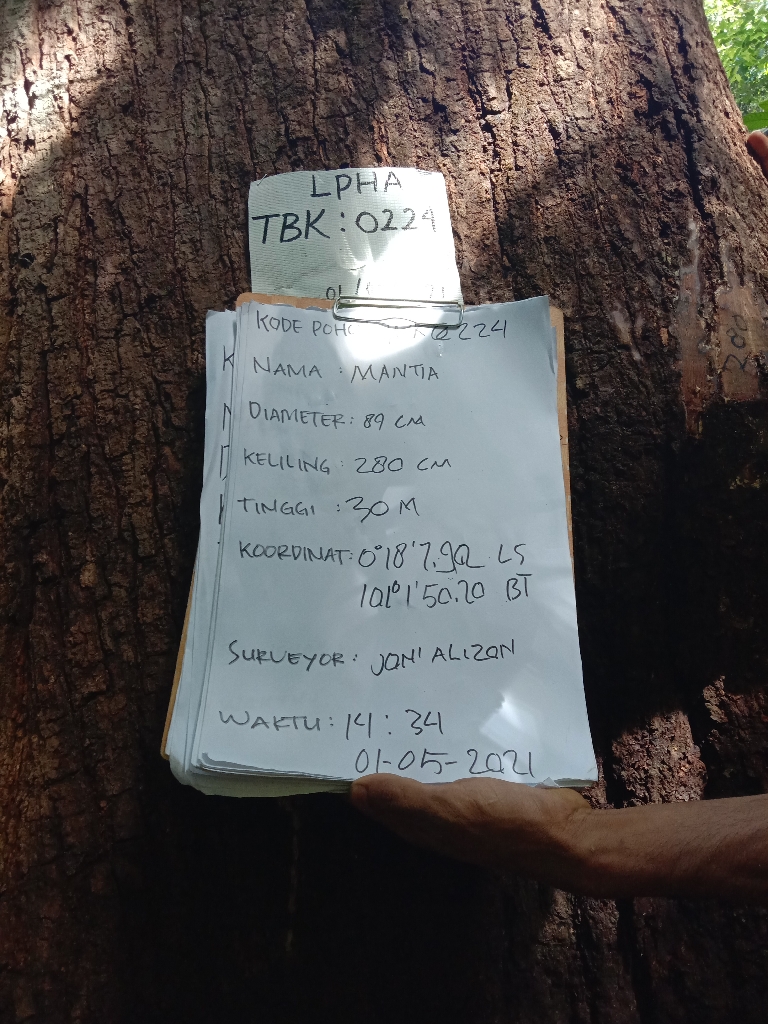 LPHA
TBK : 0224
KODE 0224
NAMA : MANTIA
DIAMETER : 89 CM
KELILING : 280 CM
TINGGI : 30 M
KOORDINAT : 0°18'7.92 LS
101°1'50.20 BT
SURVEYOR : JONI ALIZON
WAKTU : 14 : 34
01-05-2021